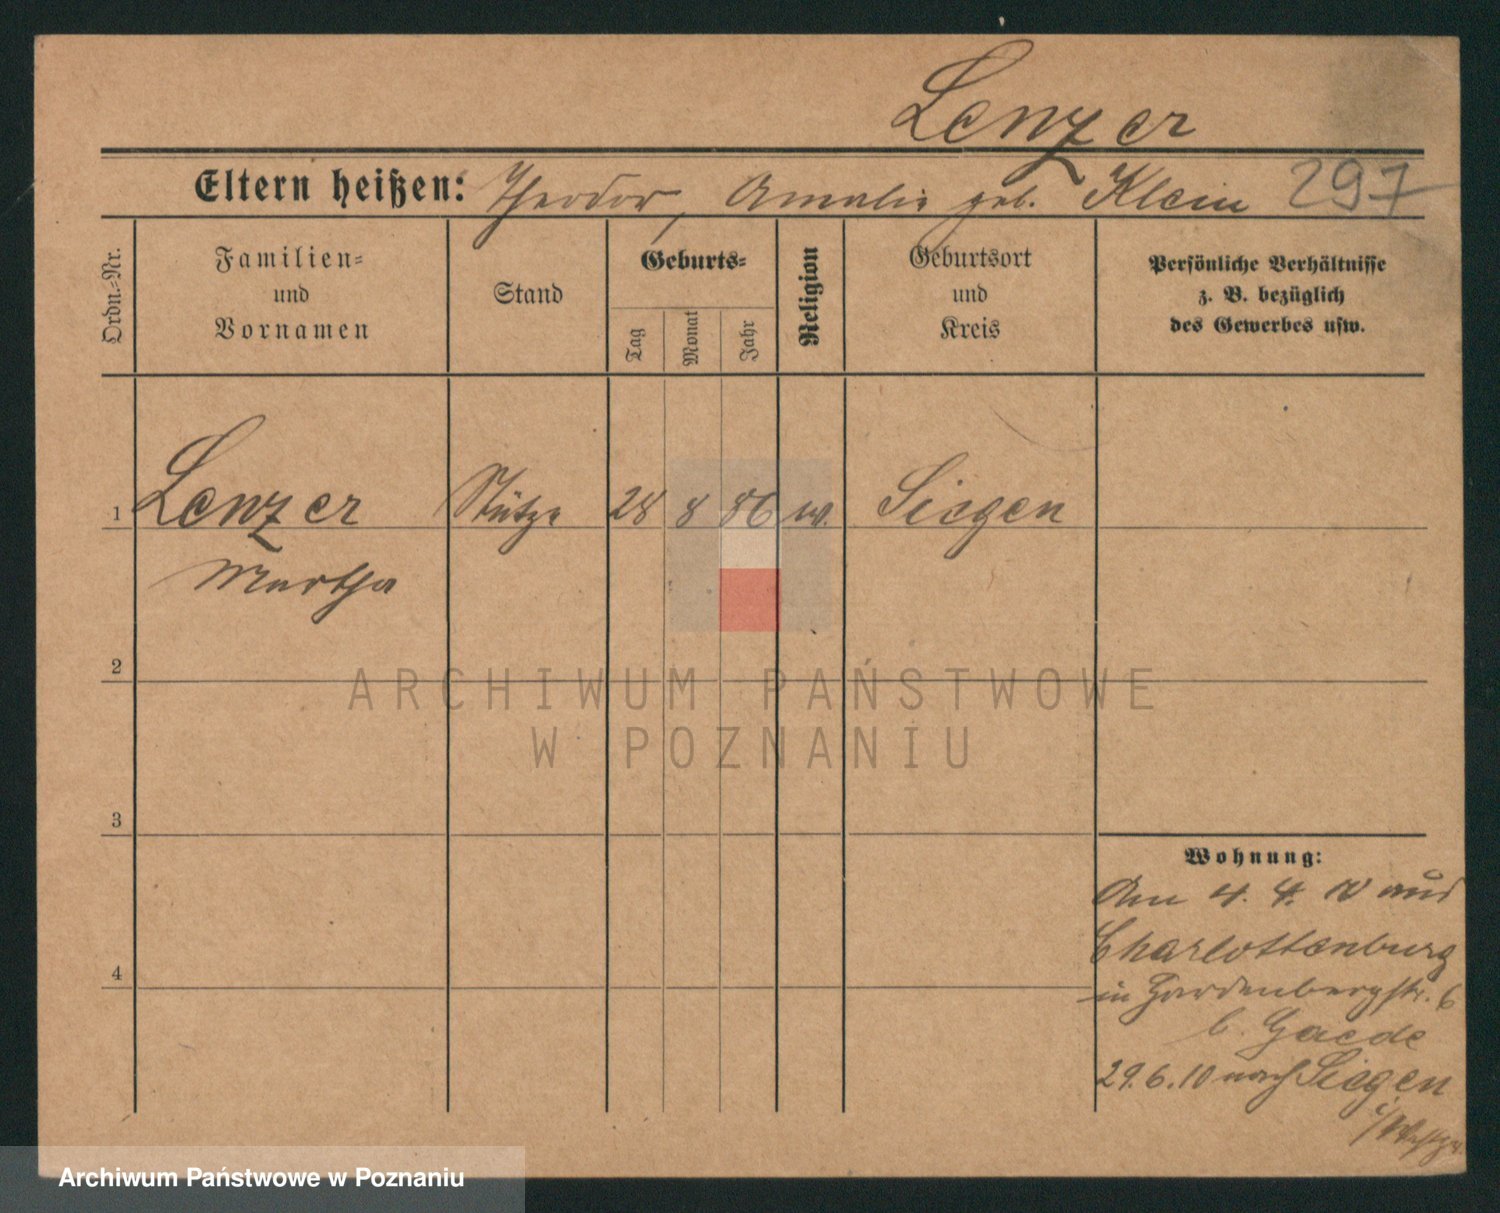 Lenzer
Eltern heißen: Theodor, Amalie geb. Klein 297
Ordn.-Nr.
Familien-
und
Vornamen
Stand
Geburts-
Tag
Monat
Jahr
Religion
Geburtsort
und
Kreis
Persönliche Verhältnisse
z. B. bezüglich
des Gewerbes usw.
1 Lenzer Stütze 28 8 86 ev. Siegen
Martha
2
3
4
ARCHIWUM PAŃSTWOWE
W POZNANIU
Wohnung:
Am 4. 4. 10 aus
Charlottenburg
in Hardenbergstr. 6
b. Gaede
29.6.10 nach Siegen
i/Westf.
Archiwum Państwowe w Poznaniu